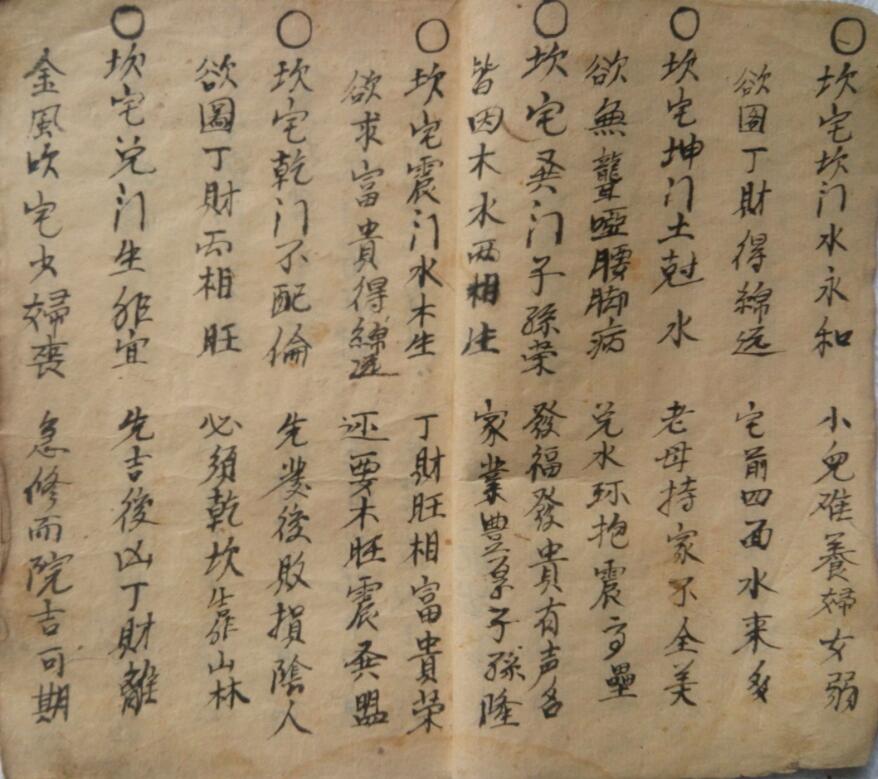 ○坎宅坎门水永和 小兒难養婦女弱
欲圖丁財得綿远 宅前四面水来多
○坎宅坤门土尅水 老母持家不全美
欲無聾啞腰脚病 兑水环抱震高壘
○坎宅巽门子孫荣 發福發貴有声名
皆因木水两相生 家業豊厚子孫隆
○坎宅震门水木生 丁財旺相富貴荣
欲求富貴得綿远 还要木旺震巽盟
○坎宅乾门不配倫 先發後敗損陰人
欲圖丁財两相旺 必須乾坎靠山林
○坎宅兑门生非宜 先吉後凶丁財離
金風吹宅少婦喪 急修而院吉可期